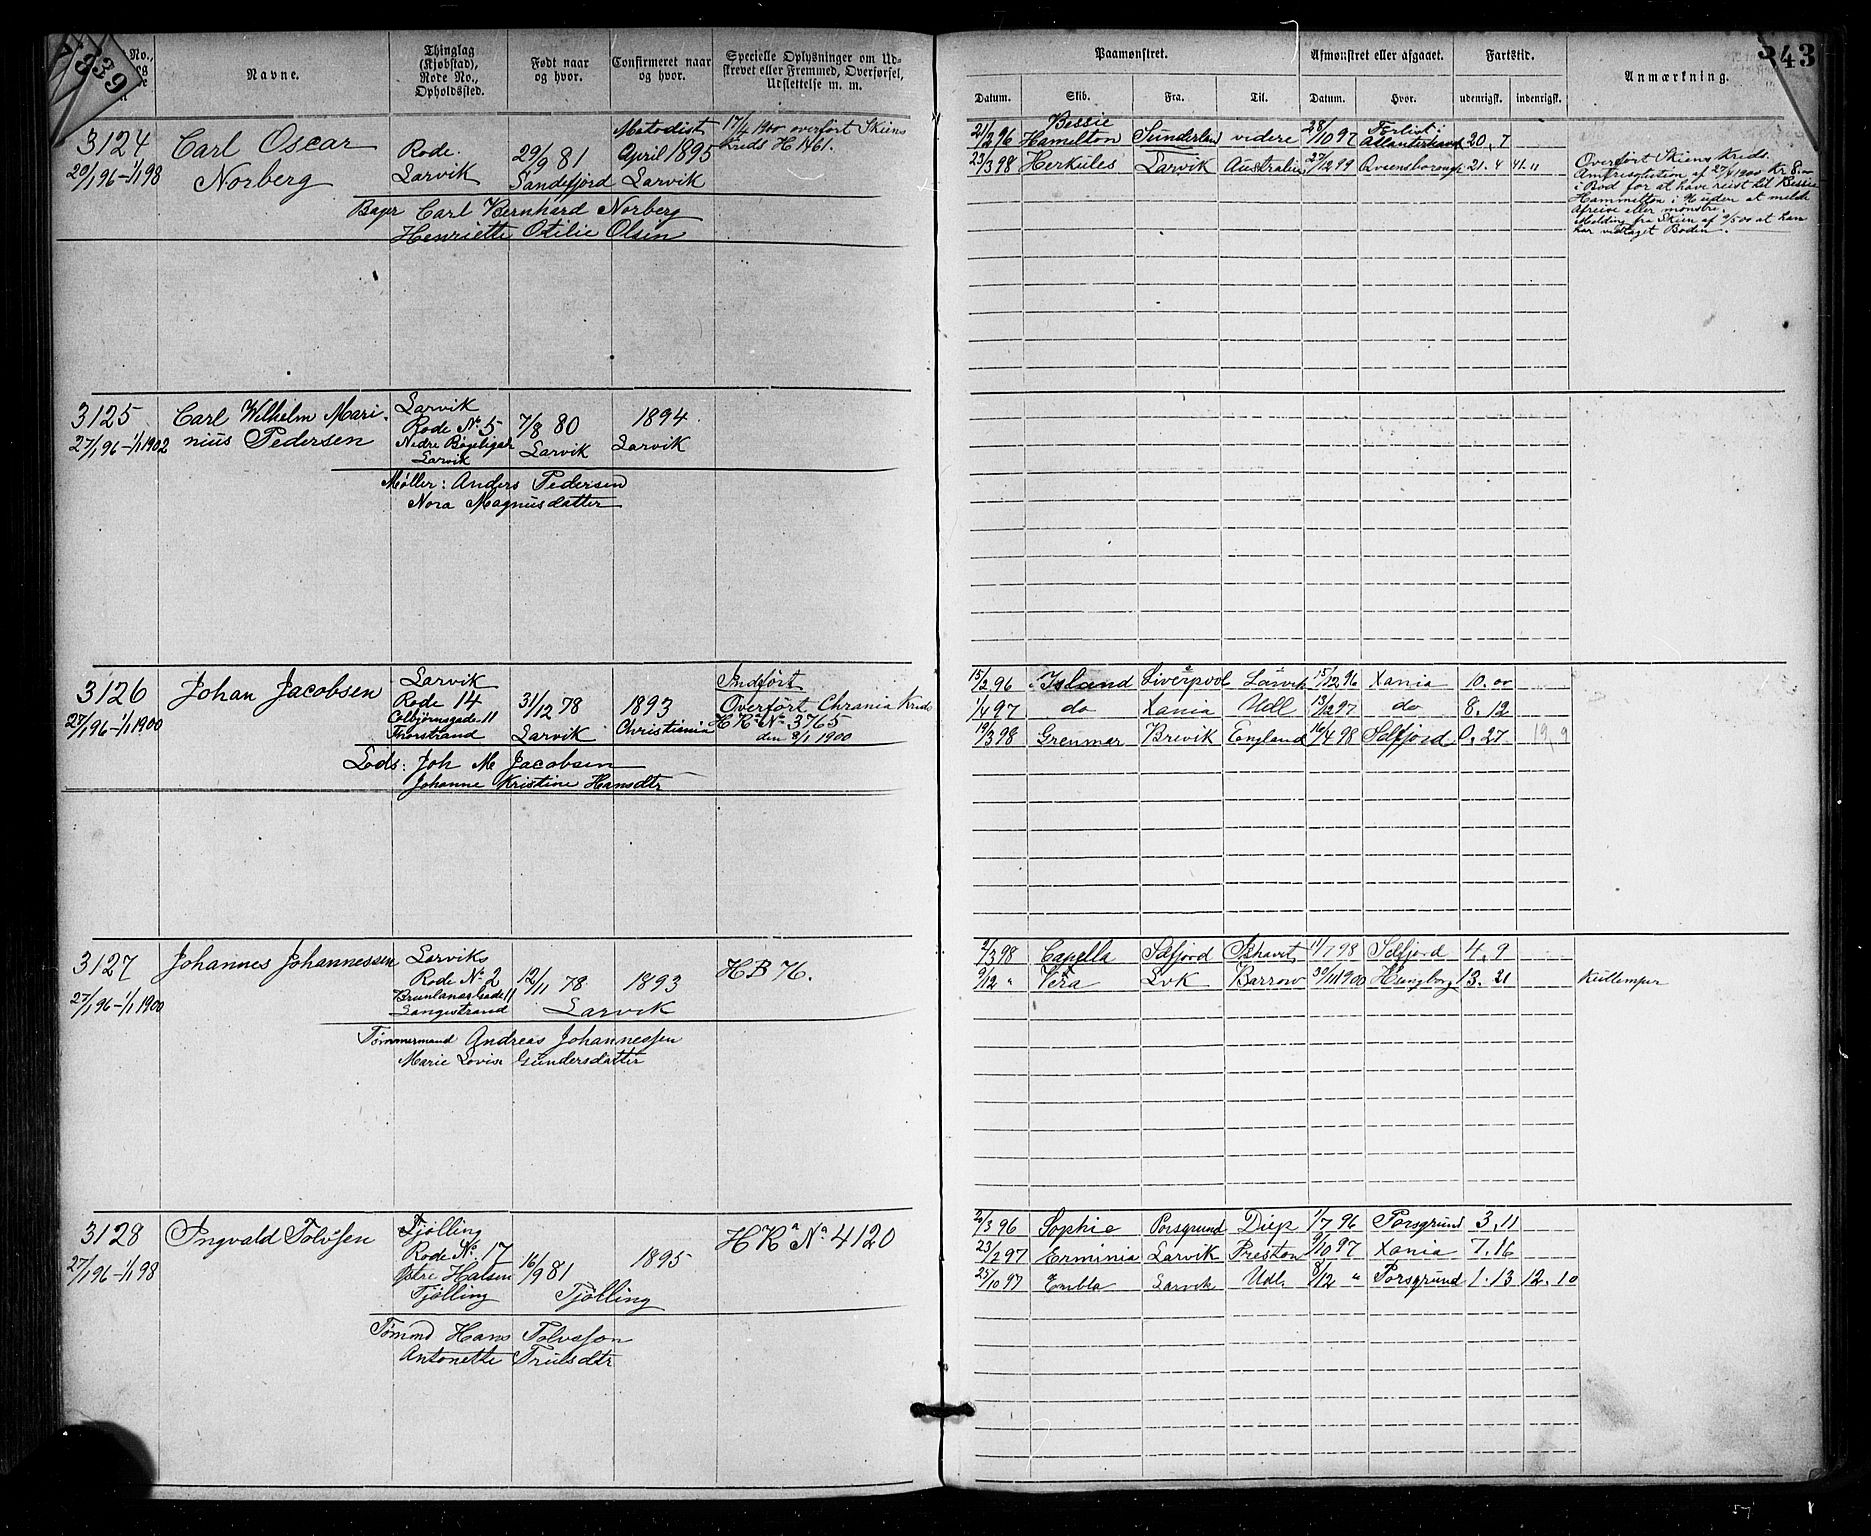 839
343
No.,
Navne.
Thinglag
(Kjøbstad),
Rode No.,
Opholdssted.
Født naar
og hvor.
Confirmeret naar
og hvor.
Specielle Oplysninger om Ud-
skrevet eller Fremmed, Overførsel,
Udslettelse m. m.
Paamønstret.
Datum. Skib. Fra. Til.
Afmønstret eller afgaaet.
Datum. Hvor.
Fartstid.
udenrigsk. indenrigsk.
Anmærkning.
3124
20/1 96 - 1/1 98
Carl Oscar
Norberg
Rode.
Larvik
29/9 81
Sandefjord
Metodist
April 1895
Larvik
17/4 1900 overført Skiens
Kreds H 1461.
Bager Carl Bernhard Norberg
Henriette Otilie Olsen
21/2 96 Bessie Hamelton Sunderland videre 28/10 97 Forlist i Atlanterhavet 20. 7
23/3 98 Herkules Larvik Australien 27/12 99 Queensborough 21. 4 41. 11
Overført Skiens Kreds.
af 27/4 1900 Kr 8.-
i Bod for at have reist til Bessie
Hammelton i 96 uden at melde
Afreise eller mønstre.
Melding fra Skien af 9/5 00 at han
har vedtaget Boden.
3125
27/1 96 - 1/1 1902
Carl Wilhelm Mari-
nius Pedersen
Larvik
Rode No 5
Nedre Bøgeligade
Larvik
7/8 80
Larvik
1894
Larvik
Møller: Anders Pedersen
Nora Magnusdatter
3126
27/1 96 - 1/1 1900
Johan Jacobsen
Larvik
Rode 14
Colbjørnsgade 11
Thorstrand
31/12 78
Larvik
1893
Christiania
Indført
Overført Chrania Kreds
H Ra No 3765
den 3/1 1900
Lods: Joh M Jacobsen
Johanne Kristine Hansdtr
15/2 96 Island Liverpool Larvik 15/12 96 Xania 10. 00
1/4 97 do Xania Udl 13/12 97 do 8. 12
19/3 98 Grenmar Brevik England 16/4 98 Selfjord 0. 27 19. 9
3127
27/1 96 - 1/1 1900
Johannes Johannessen
Larviks
Rode No 2
Brunlanesgade 11
Langestrand
12/11 78
Larvik
1893
H B 76.
Tømmermand Andreas Johannessen
Marie Lovise Gundersdatter
2/3 98 Capella Selfjord Ishavet 11/7 98 Selfjord 4. 9
9/12 " Vera Lvk Barrow 30/11 1900 H:singborg 13. 21
Kullemper
3128
27/1 96 - 1/1 98
Ingvald Tolvsen
Tjølling
Rode No. 17
Østre Halsen
Tjølling
16/9 81
Tjølling
1895
H Ra No 4120
Tømmd Hans Tolvsson
Antonette Trulsdtr
2/3 96 Sophie Porsgrund Diep 1/7 96 Porsgrund 3. 11
23/2 97 Erminia Larvik Preston 9/10 97 Xania 7. 16
25/10 97 Embla Larvik Udl. 8/12 " Porsgrund 1. 13 12. 10